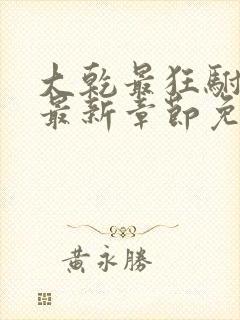 大乾最狂駙
最新章節免
黃永勝